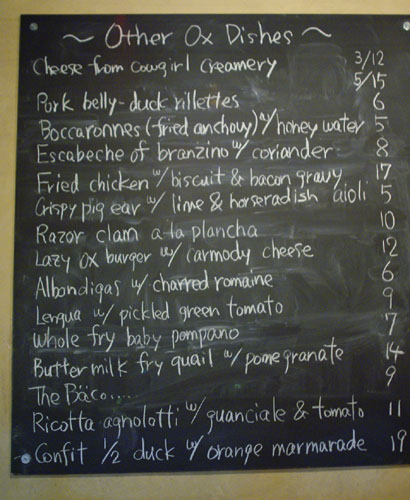 ~ Other Ox Dishes ~
Cheese from Cowgirl Creamery 3/12
5/15
Pork belly-duck rillettes 6
Boccaronnes (fried anchovy) w/ honey water 5
Escabeche of branzino w/ coriander 8
Fried chicken w/ biscuit & bacon gravy 17
Crispy pig ear w/ lime & horseradish aioli 5
Razor clam a-la plancha 10
Lazy Ox burger w/ carmody cheese 12
Albondigas w/ charred romaine 6
Lengua w/ pickled green tomato 9
Whole fry baby pompano 7
Buttermilk fry quail w/ pomegranate 14
The Bäco.... 9
Ricotta agnolotti w/ guanciale & tomato 11
Confit 1/2 duck w/ orange marmarade 19